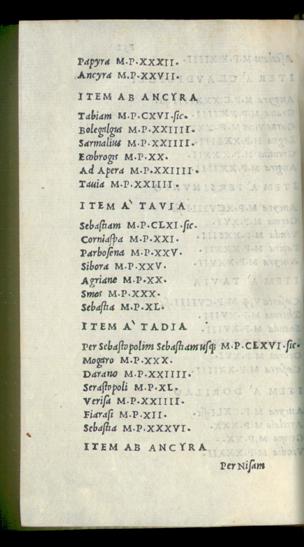 Papyra M.P.XXXII.
Ancyra M.P.XXVII.
ITEM AB ANCYRA
Tabiam M.P.CXVI.sic.
Bolegalgus M.P.XXIIII.
Sarmalius M.P.XXIIII.
Ecobrogis M.P.XX.
Ad Apera M.P.XXIIII.
Tauia M.P.XXIIII.
ITEM A' TAVIA
Sebastiam M.P.CLXI.sic.
Corniaspa M.P.XXI.
Parbosena M.P.XXV.
Sibora M.P.XXV.
Agriane M.P.XX.
Smos M.P.XXX.
Sebastia M.P.XL.
ITEM A' TADIA
Per Sebastopolim Sebastiam usq; M.P.CLXVI.sic.
Mogaro M.P.XXX.
Darano M.P.XXIIII.
Serastopoli M.P.XL.
Verisa M.P.XXIIII.
Fiarasi M.P.XII.
Sebastia M.P.XXXVI.
ITEM AB ANCYRA
Per Nisam